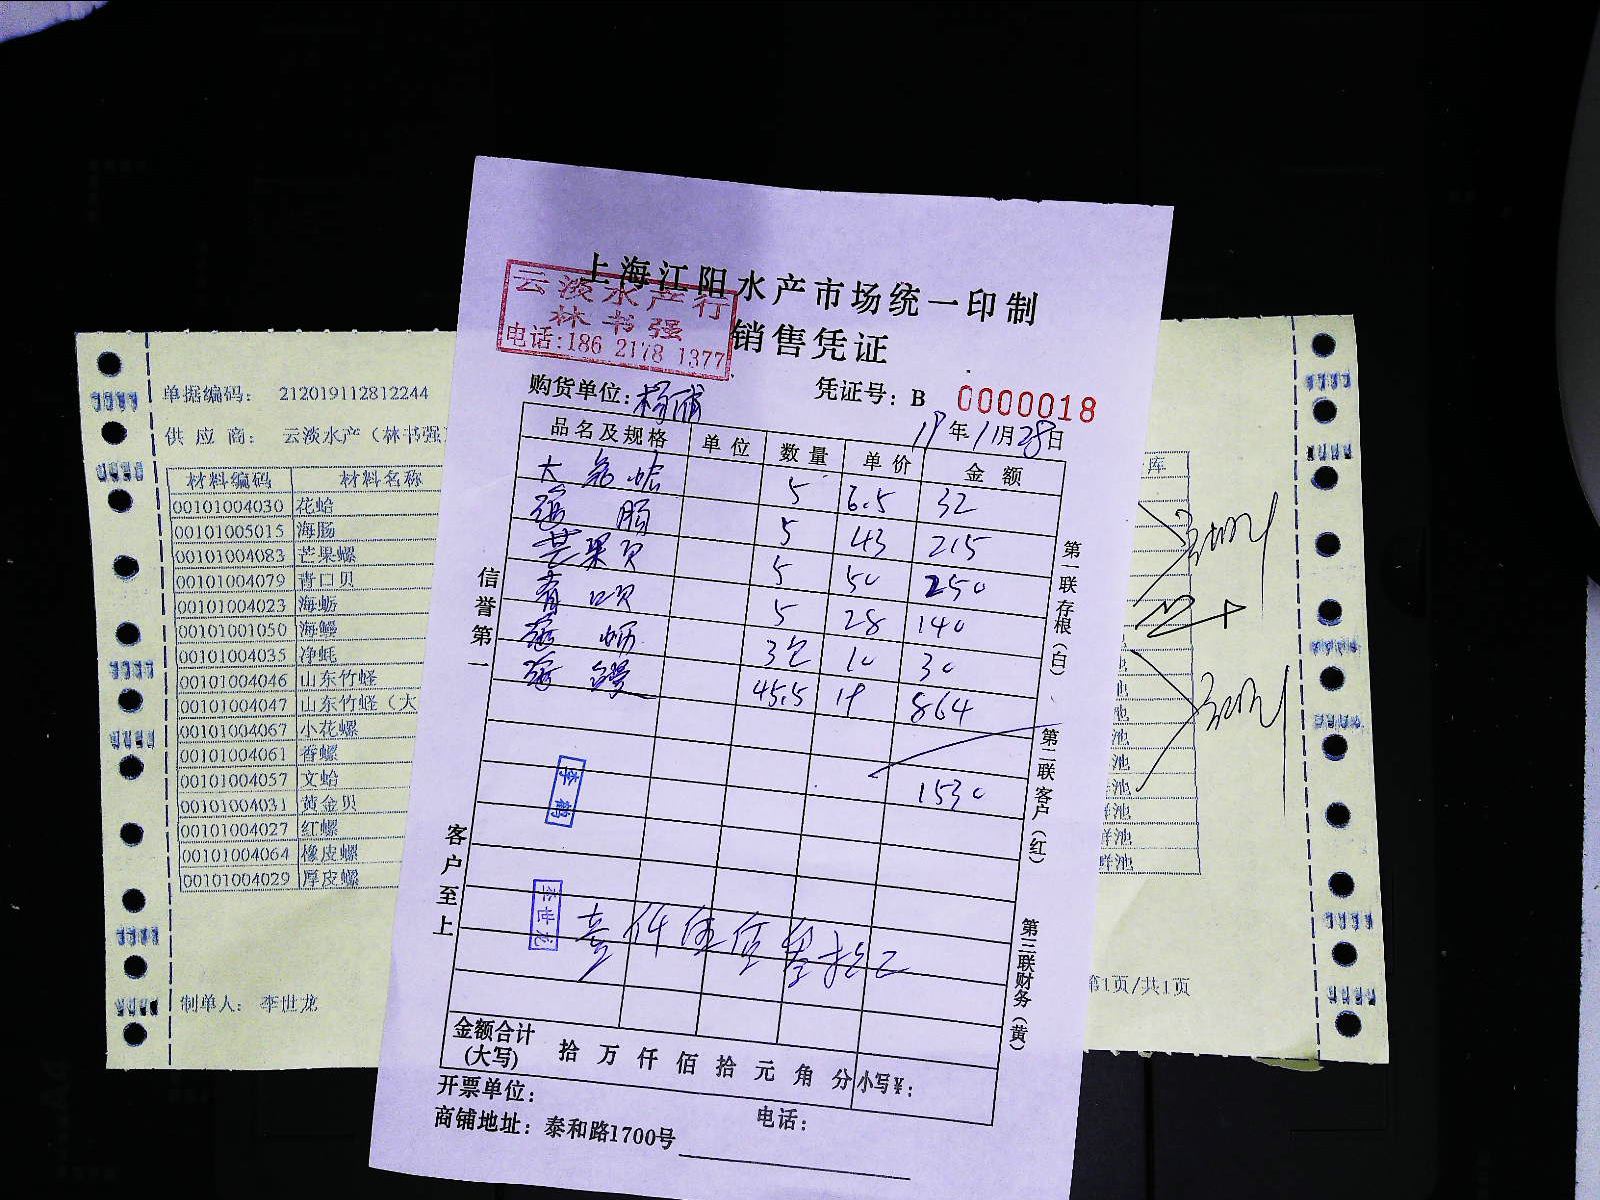 上海江阳水产市场统一印制
销售凭证
云淡水产行
林书强
电话:186 2178 1377
购货单位:杨浦
凭证号: B 0000018
19年11月28日
品名及规格 单位 数量 单价 金额
大 蛤 5 6.5 32
海肠 5 43 215
芒果贝 5 50 250
青口贝 5 28 140
海蛎 3包 10 30
海鳗 45.5 19 864
1530
李鹤
李世龙
壹仟伍佰叁拾元
金额合计
(大写)
拾万仟佰拾元角分
小写¥:
开票单位:
电话:
商铺地址: 泰和路1700号
信誉第一
客户至上
第一联存根(白)
第二联客户(红)
第三联财务(黄)
单据编码: 212019112812244
供应商: 云淡水产(林书强)
材料编码 材料名称 库
00101004030 花蛤
00101005015 海肠
00101004083 芒果螺
00101004079 青口贝
00101004023 海蛎
00101001050 海鳗
00101004035 净蚝
00101004046 山东竹蛏
00101004047 山东竹蛏(大
00101004067 小花螺
00101004061 香螺
00101004057 文蛤
00101004031 黄金贝
00101004027 红螺
00101004064 橡皮螺
00101004029 厚皮螺
池
池
池
池
池
池
鲜池
鲜池
鲜池
制单人: 李世龙
第1页/共1页